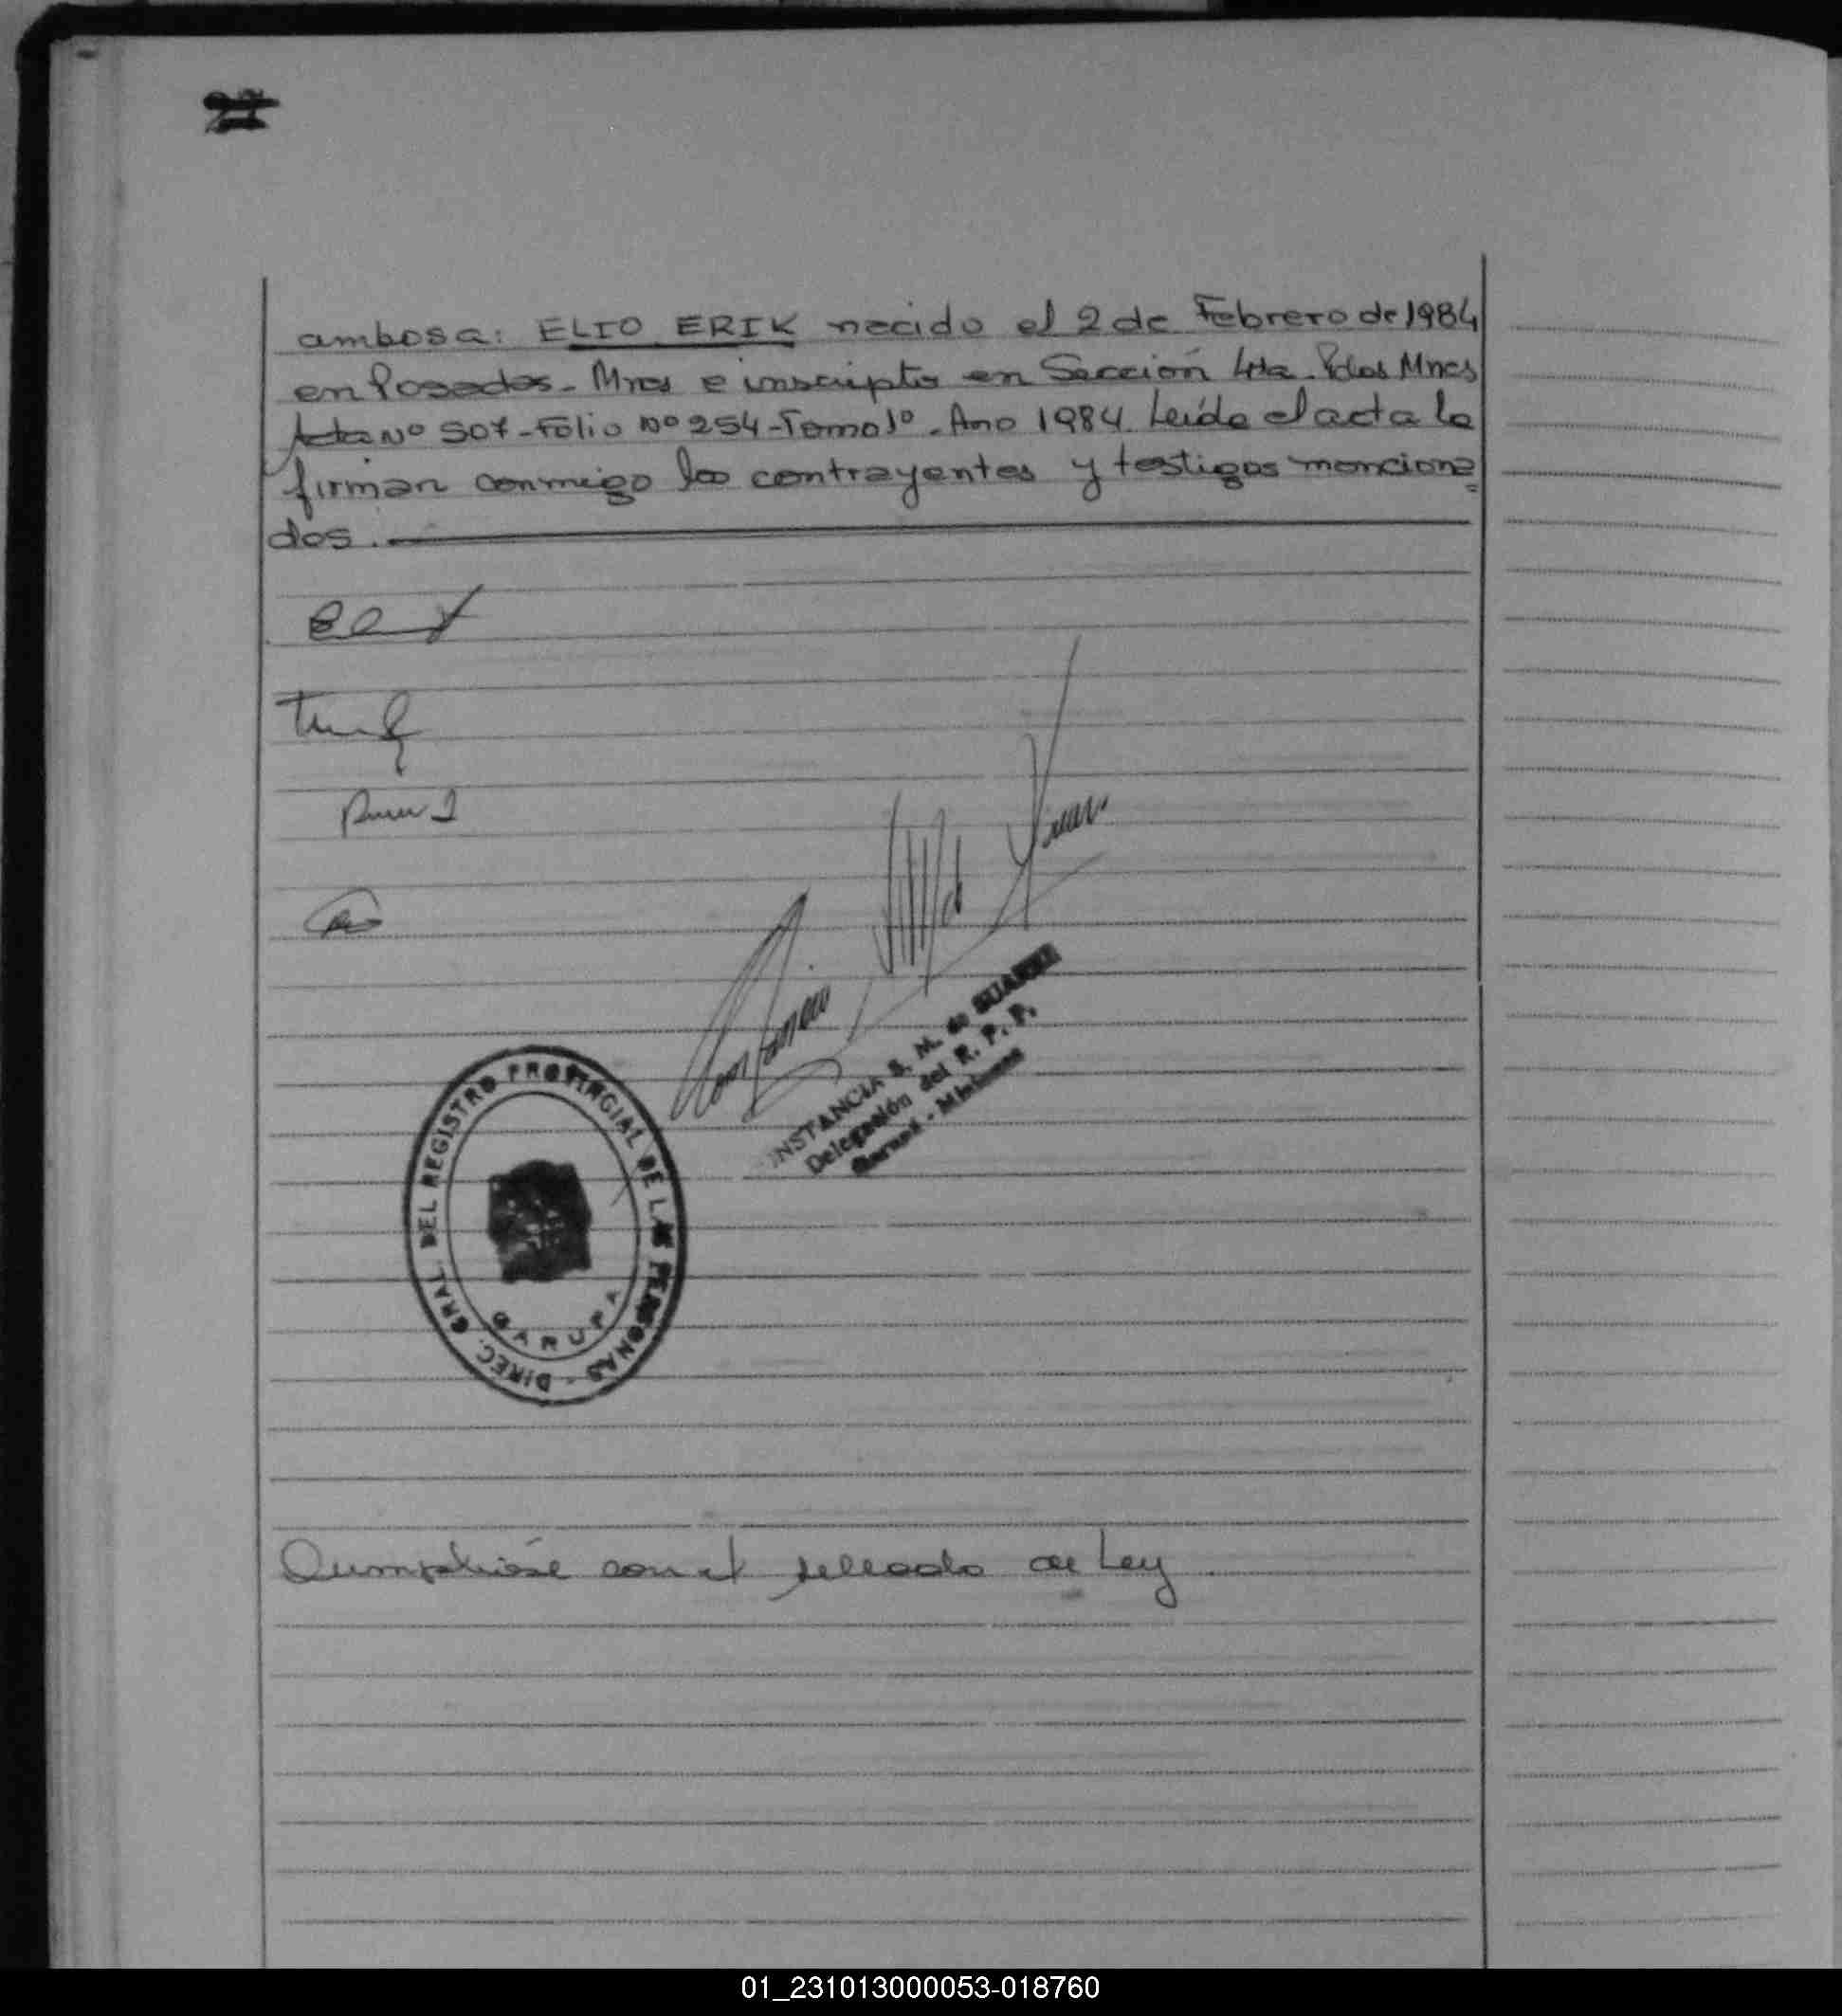 ambos a: ELIO ERIK nacido el 2 de Febrero de 1984
en Posadas - Mnes e inscripto en Sección 4ta. Pdas Mnes
Acta Nº 507 - Folio Nº 254 - Tomo 1º. Ano 1984. Leída el acta la
firman conmigo los contrayentes y testigos menciona=
dos.
CONSTANCIA S. M. de SUAREZ
Delegación del R. P. P.
Garupá - Misiones
DIREC. GRAL. DEL REGISTRO PROVINCIAL DE LAS PERSONAS -
GARUPA
Cumpliose con el sellado de Ley
01_231013000053-018760